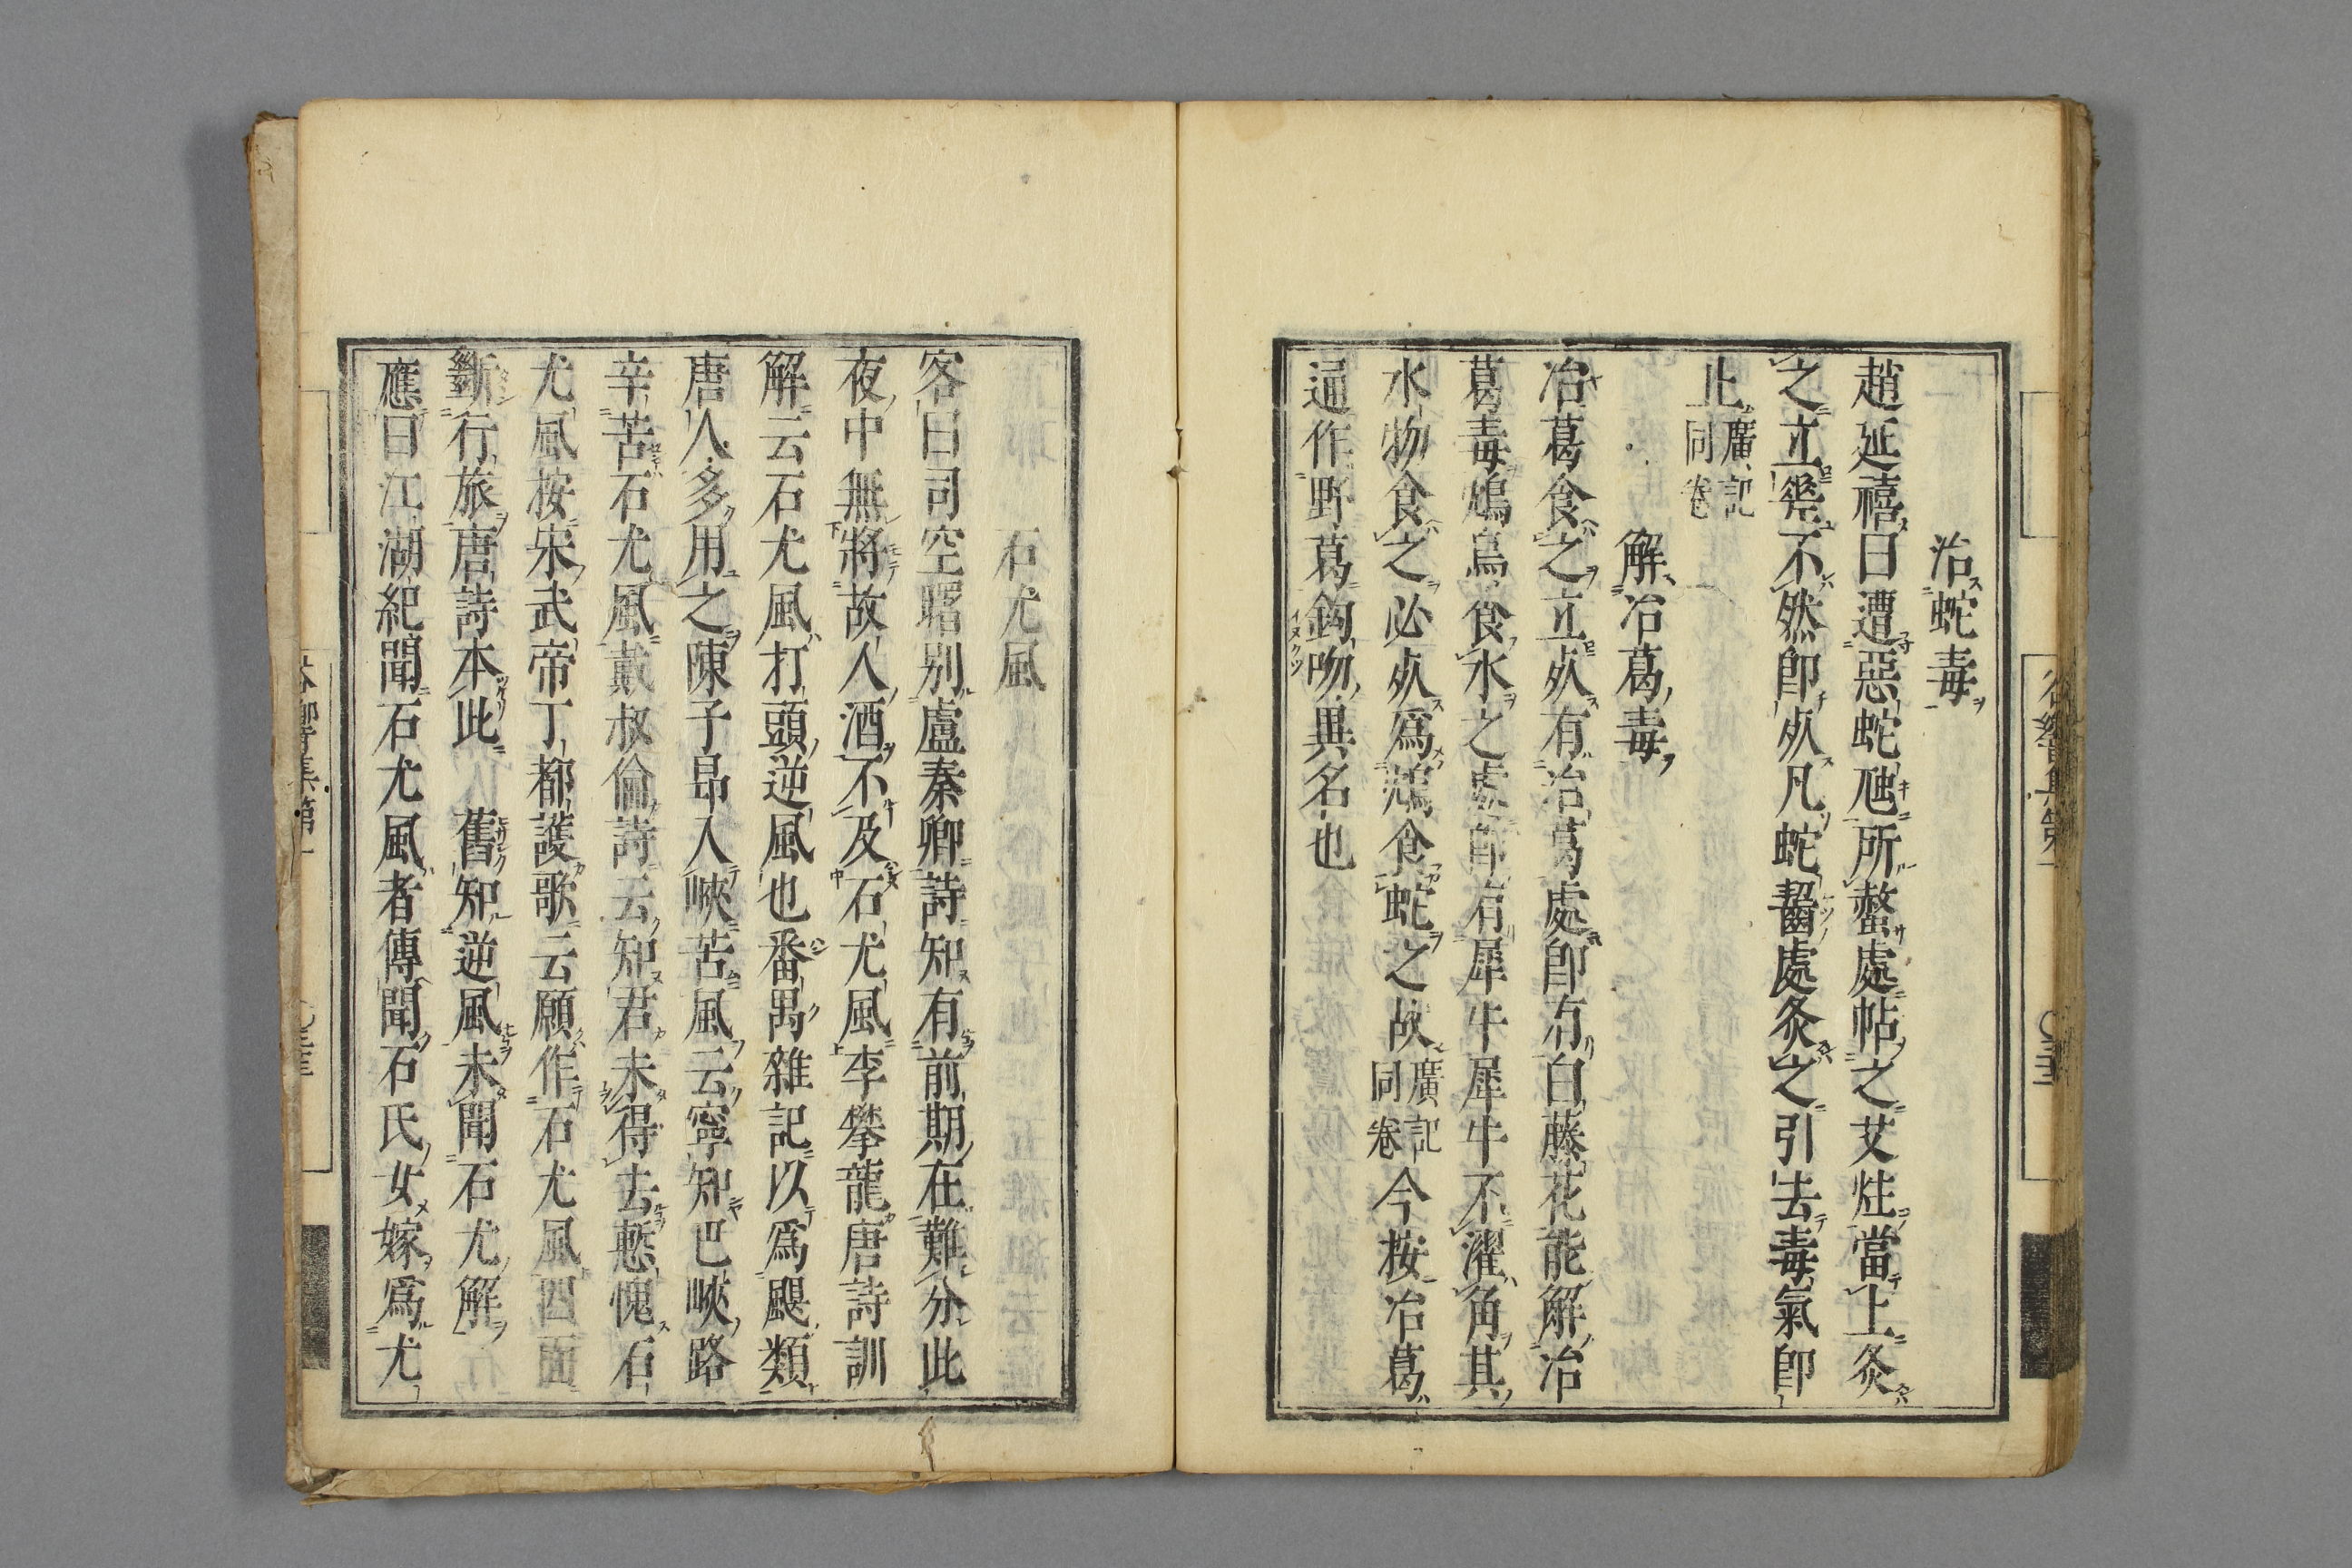 治蛇毒
趙延禧曰遭惡蛇虺所螫處帖之艾炷當上灸
之立瘥不然卽死凡蛇齧處灸之引去毒氣卽
止廣記同卷
解冶葛毒
冶葛食之立死有冶葛處卽有白藤花能解冶
葛毒鴆鳥食水之處卽有犀牛犀牛不濯角其
水物食之必死爲鴆食蛇之故廣記同卷今按冶葛
逼作野葛鈎吻異名也
石尤風
客曰司空曙別盧秦卿詩知有前期在難分此
夜中無將故人酒不及石尤風李攀龍唐詩訓
解云石尤風打頭逆風也番禺雜記以爲颶類
唐人多用之陳子昂入峽苦風云寧知巴峽路
辛苦石尤風戴叔倫詩云知君未得去慙愧石
尤風按宋武帝丁都護歌云願作石尤風四面
斷行旅唐詩本此 舊知逆風未聞石尤解
應曰江湖紀聞石尤風者傳聞石氏女嫁爲尤